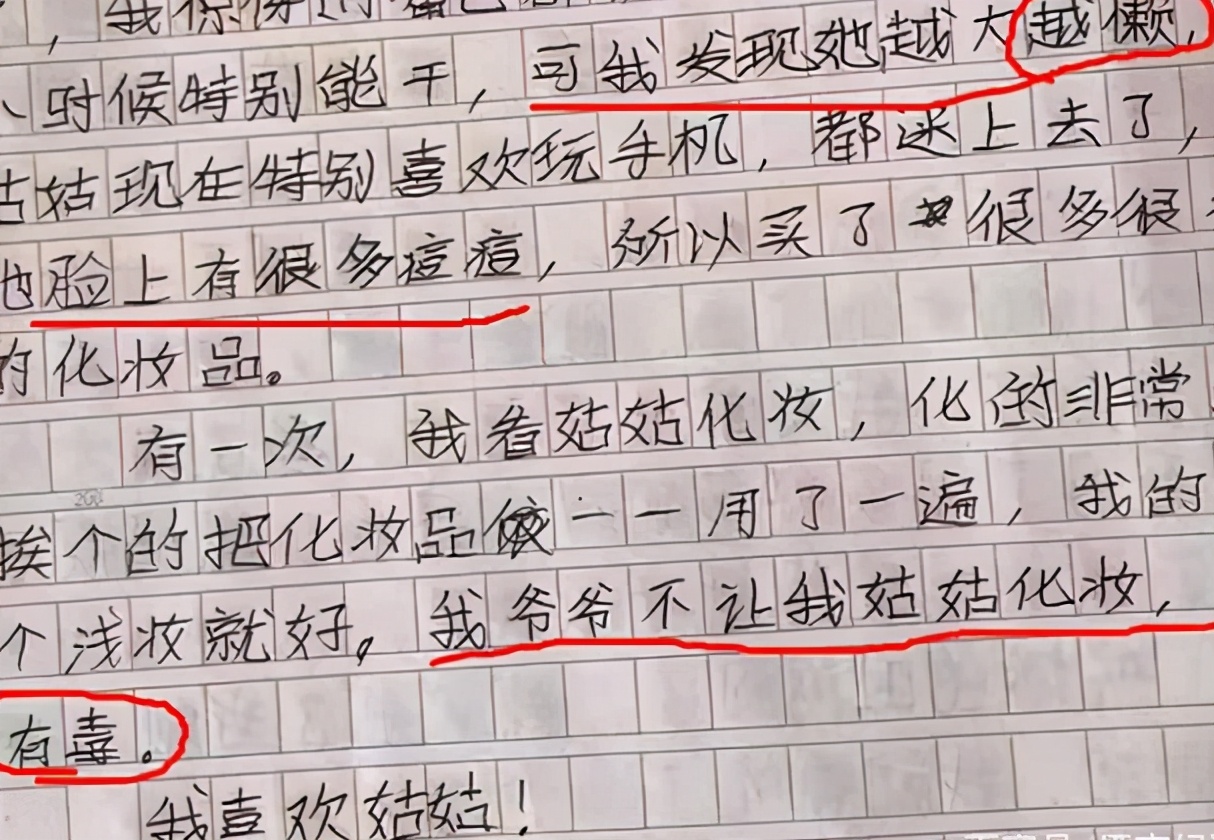 ，我
时候特别能干，可我发现她越大越懒，
姑姑现在特别喜欢玩手机，都迷上去了，
他脸上有很多痘痘，所以买了很多很
的化妆品。
有一次，我看姑姑化妆，化的非常
挨个的把化妆品一一用了一遍，我的
个浅妆就好。我爷爷不让我姑姑化妆，
有毒。
我喜欢姑姑！